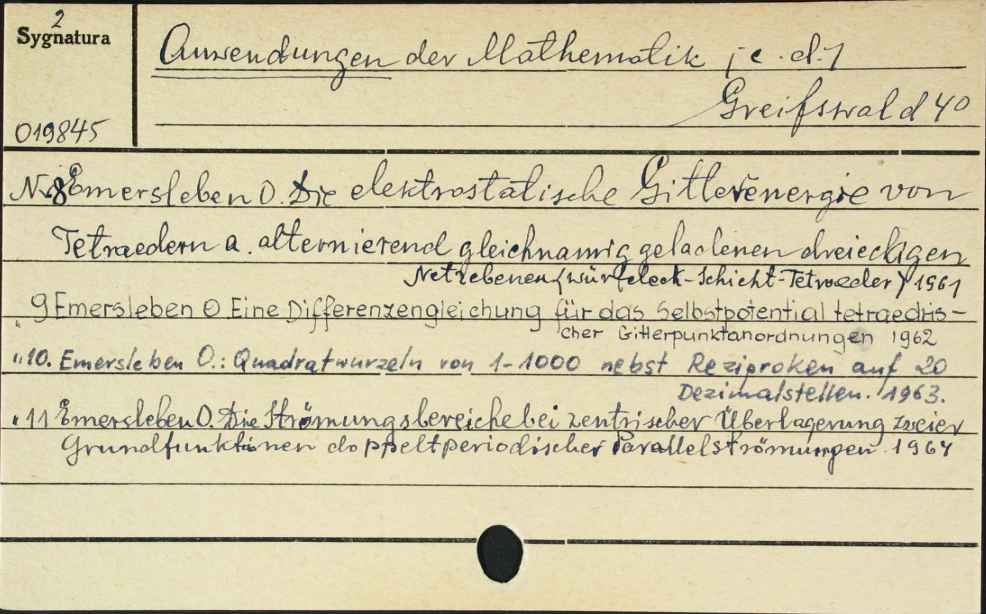 2
Sygnatura
019845
Anwendungen der Mathematik / c. d. /
Greifswald 40
N. 8 Emersleben O. Die elektrostatische Gitterenergie von
Tetraedern a. alternierend gleichnamig geladenen dreieckigen
Netzebenen (Würfeleck-Schicht-Tetraeder) 1961
" 9 Emersleben O Eine Differenzengleichung für das Selbstpotential tetraedris-
cher Gitterpunktanordnungen 1962
" 10. Emersleben O.: Quadratwurzeln von 1-1000 nebst Reziproken auf 20
Dezimalstellen. 1963.
" 11 Emersleben O. Die Strömungsbereiche bei zentrischer Überlagerung zweier
Grundfunktionen doppeltperiodischer Parallelströmungen. 1964